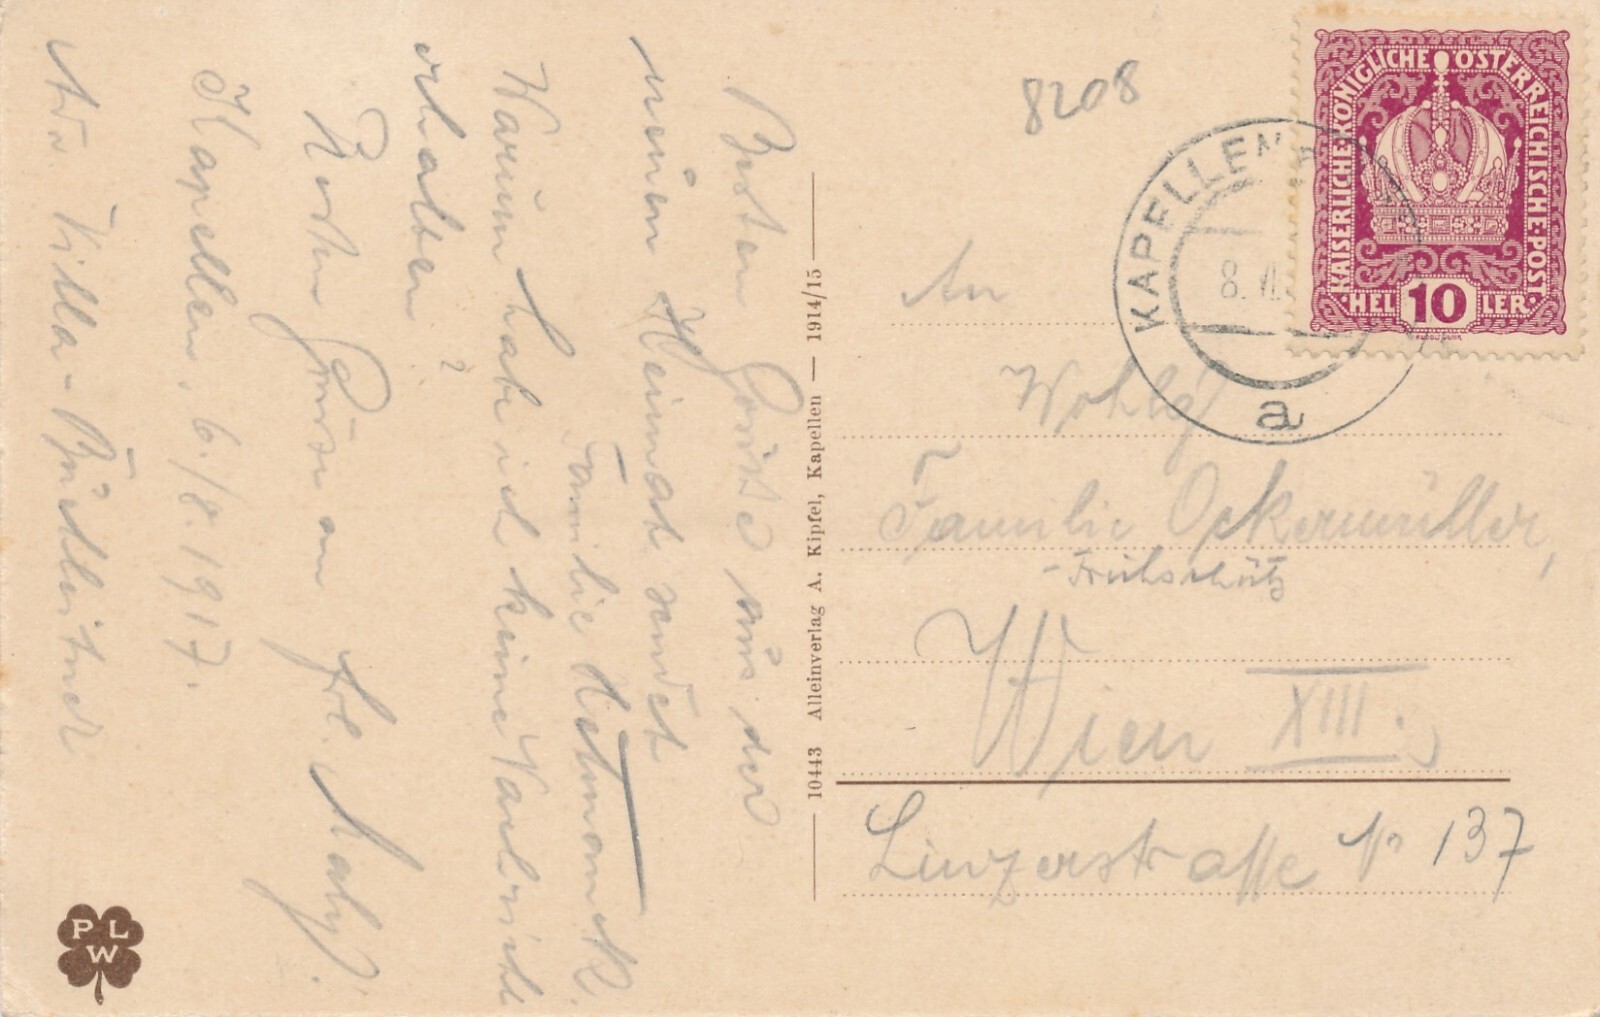 Besten Grüße aus der
neuen Heimat sendet
Familie Hetmanek.
Warum habe ich keine Nachricht
erhalten?
Besten Grüße an Frl. Maly!
Kapellen, 6./8. 1917.
Adr. Villa-
8208
An
Wohlg.
Familie Ockermüller,
-Frühschütz
Wien XIII.,
Linzerstrasse No 137
10443 Alleinverlag A. Kipfel, Kapellen — 1914/15
KAPELLEN
8. VIII.
a
KAISERLICHE KÖNIGLICHE ÖSTERREICHISCHE POST
HEL 10 LER
PLW